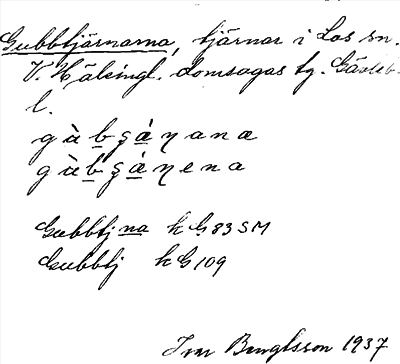 Gubbtjärnarna, tjärnar i Los sn.
V. Hälsingl. domsagas tg. Gävleb.
l.
gu̇̀bşȧ́ŋana
gu̇̀bşȧ́ŋena
Gubbtjna kG83SM
Gubbtj kG109
Ivar Bengtsson 1937